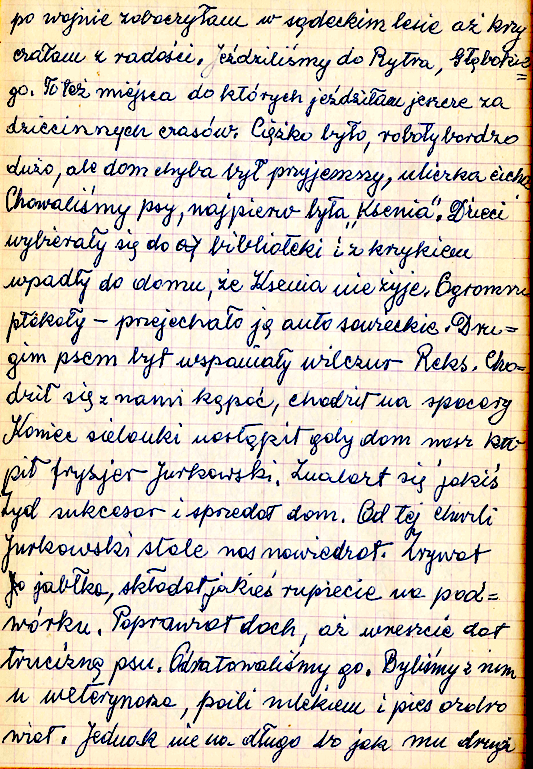 po wojnie zobaczyłam w sądeckim lesie aż krzy
czałam z radości. Jeździliśmy do Rytra, Głębokie=
go. To też miejsca do których jeździłam jeszcze za
dziecinnych czasów. Ciężko było, roboty bardzo
dużo, ale dom chyba był przyjemny, uliczka cicha
Chowaliśmy psy, najpierw była "Ksenia". Dzieci
wybierały się do biblioteki i z krzykiem
wpadły do domu, że Ksenia nie żyje. Ogromnie
płakały – przejechało ją auto sowieckie. Dru=
gim psem był wspaniały wilczur Reks. Cho=
dził się z nami kąpać, chodził na spacery
Koniec sielanki nastąpił gdy dom nasz ku
pił fryzjer Jurkowski. Znalazł się jakiś
Żyd sukcesor i sprzedał dom. Od tej chwili
Jurkowski stale nas nawiedzał. Zrywał
jabłka, składał jakieś rupiecie na pod=
wórku. Poprawiał dach, aż wreszcie dał
truciznę psu. Odratowaliśmy go. Byliśmy z nim
u weterynarza, poili mlekiem i pies ozdro
wiał. Jednak nie na długo bo jak mu drugi